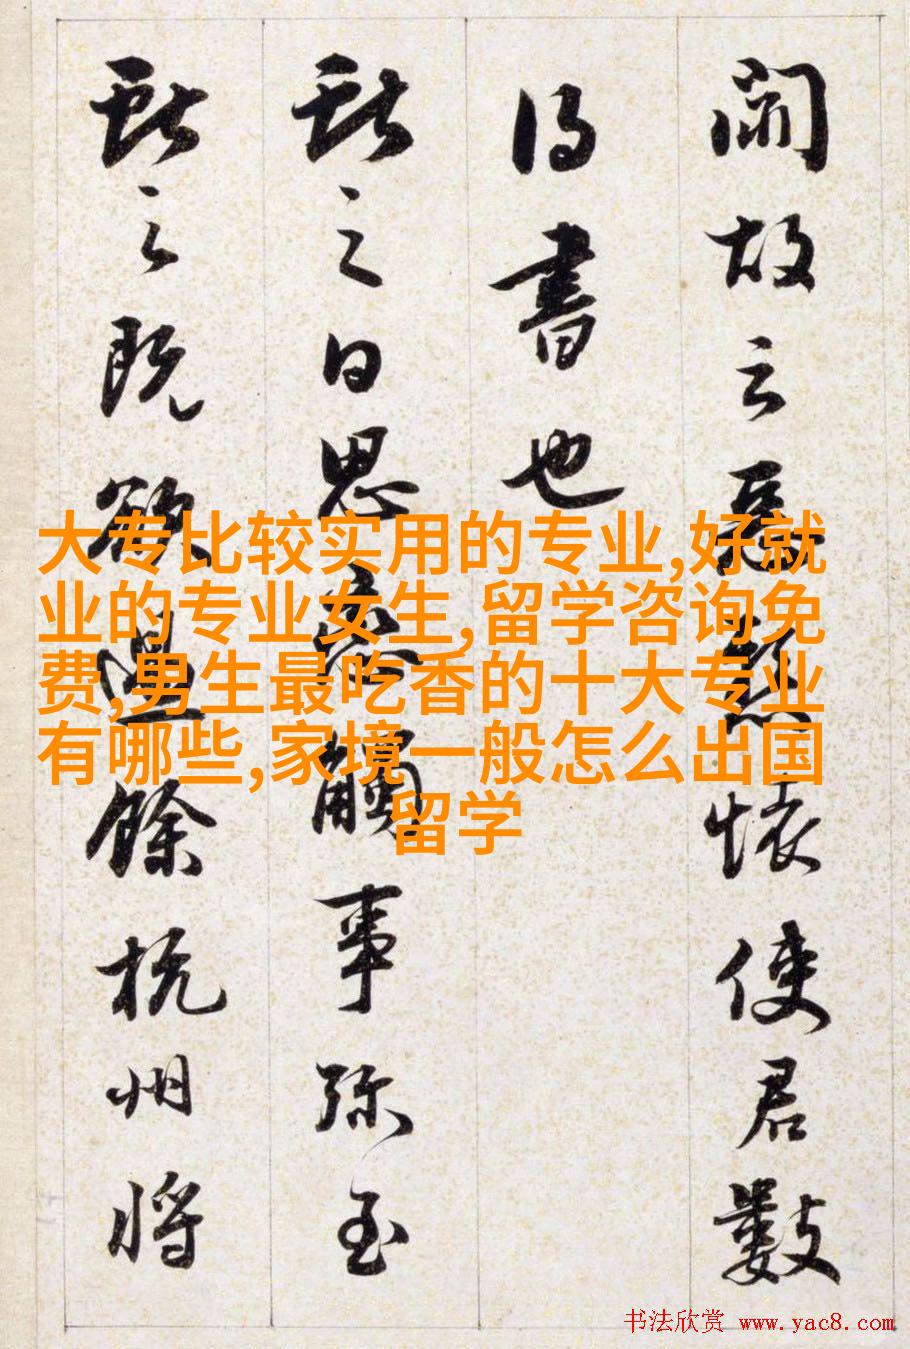 大专比较实用的专业,好就
业的专业女生,留学咨询免
费,男生最吃香的十大专业
有哪些,家境一般怎么出国
留学
故 懷使君數
得書也
之日思觸事弥至
之既欲餘杭州將
书法欣赏 www.yac8.com